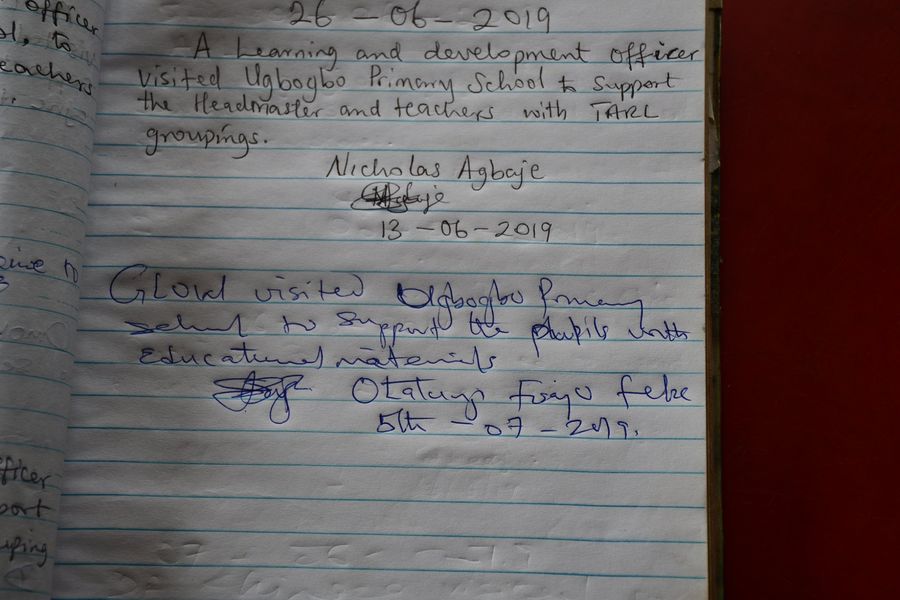 officer
to
eachers
26-06-2019
A Learning and development officer
visited Ugbogbo Primary School to support
the Headmaster and teachers with TARL
groupings.
Nicholas Agbaje
13-06-2019
visited Ugbogbo Primary
school to support the pupils with
educational materials
5th-07-2019.
fficer
port
uping